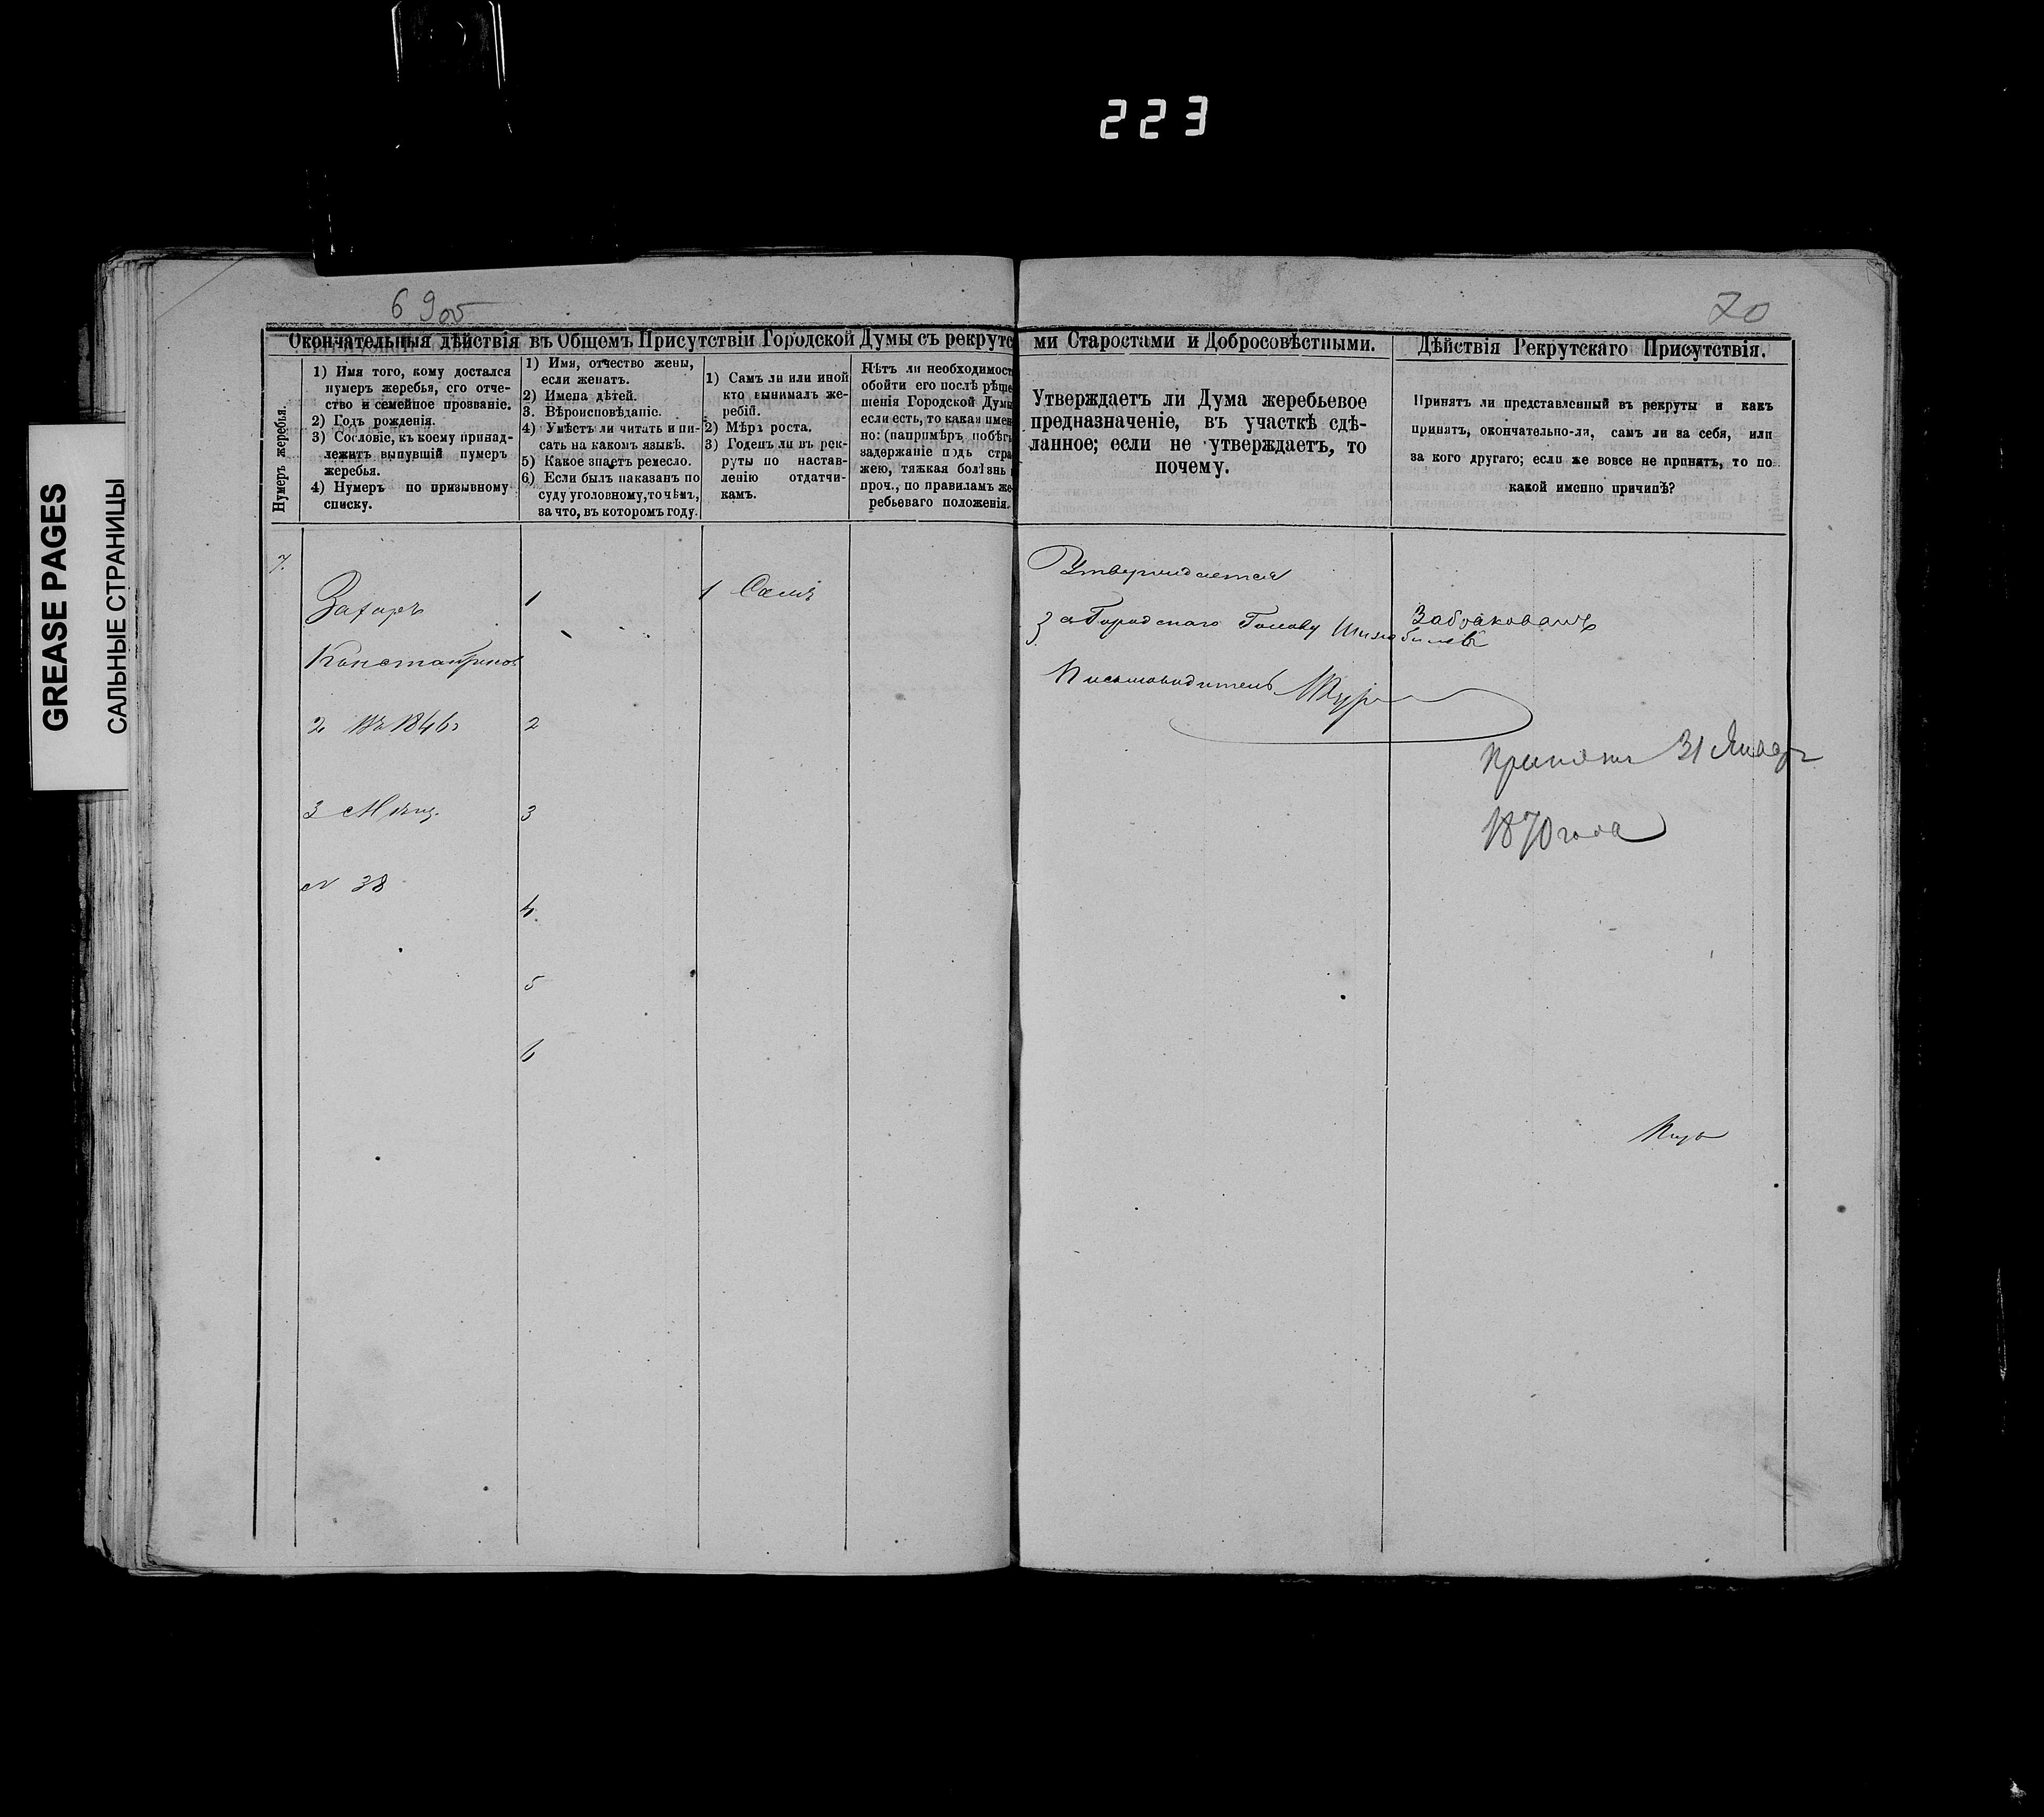 223
GREASE PAGES
САЛЬНЫЕ СТРАНИЦЫ
69об
70
Окончательныя дѣйствія въ Общемъ Присутствіи Городской Думы съ рекрутс
ми Старостами и Добросовѣстными.
Дѣйствія Рекрутскаго Присутствія.
Нумеръ жеребья.
1) Имя того, кому достался
нумеръ жеребья, его отче-
ство и семейное прозваніе.
2) Годъ рожденія.
3) Сословіе, къ коему принад-
лежитъ вынувшій нумеръ
жеребья.
4) Нумеръ по призывному
списку.
1) Имя, отчество жены,
если женатъ.
2) Имена дѣтей.
3. Вѣроисповѣданіе.
4) Умѣетъ ли читать и пи-
сать на какомъ языкѣ.
5) Какое знаетъ ремесло.
6) Если былъ наказанъ по
суду уголовному, то чѣмъ,
за что, въ которомъ году.
1) Самъ ли или иной
кто вынималъ же-
ребій.
2) Мѣра роста.
3) Годенъ ли въ рек-
руты по настав-
ленію отдатчи-
камъ.
Нѣтъ ли необходимост
обойти его послѣ рѣше
шенія Городской Думы
если есть, то какая имен
но: (напримѣръ побѣгъ
задержаніе подъ стра
жею, тяжкая болѣзнь и
проч., по правиламъ же
ребьеваго положенія.
Утверждаетъ ли Дума жеребьевое
предназначеніе, въ участкѣ сдѣ-
ланное; если не утверждаетъ, то
почему.
Принятъ ли представленный въ рекруты и какъ
принятъ, окончательно-ли, самъ ли за себя, или
за кого другаго; если же вовсе не принятъ, то по
какой именно причинѣ?
7.
Захаръ
Константинов
2 Въ 1846
3 Мѣщ.
№ 38
1
2
3
4
5
6
1 Самъ
Утверждается
За Городскаго Голову
Письмоводитель
Забракованъ
Принятъ 31 Января
1870 года